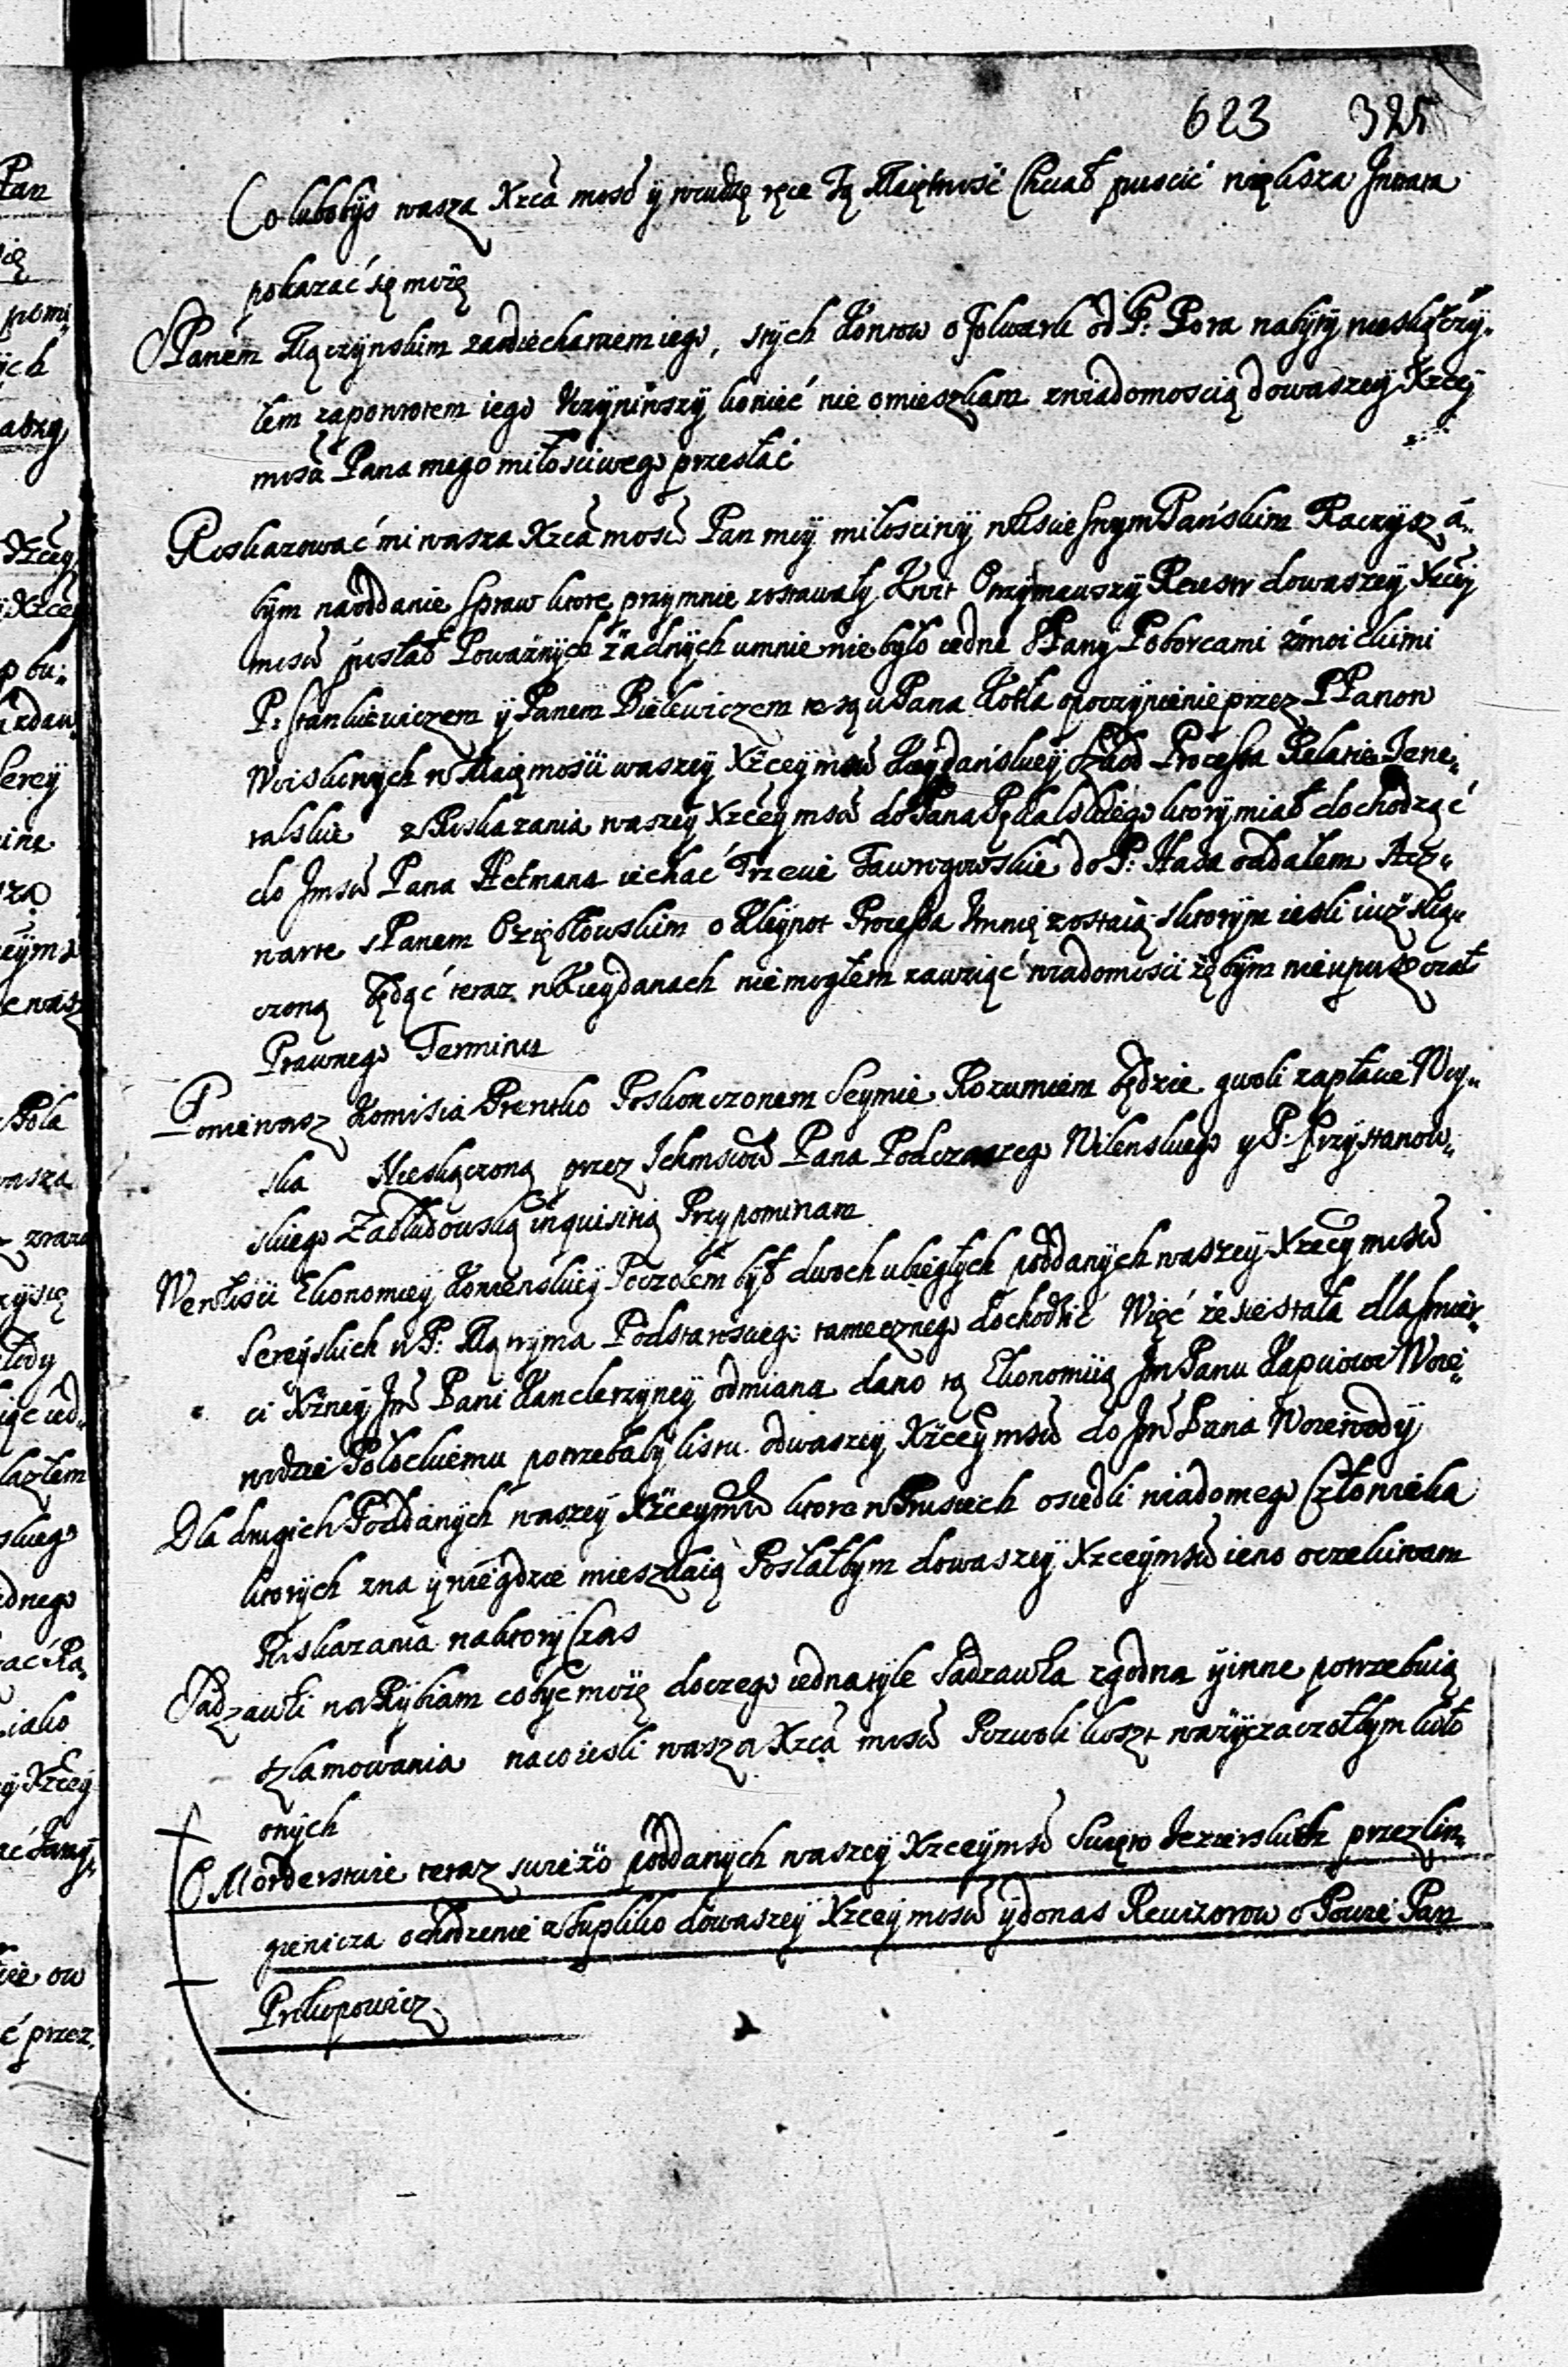 623 325
Co lubobys wasza Xzca mosc y wcudzę ręce Tą Maiętnosc Chciał puscic większa Intrata
pokazać się możę
SPanem Mączynskim zaodiechaniem iego, stych Kontow o folwark od P: Pora nabyty nieskączy„
łem zapowrotem iego Uczyniwszy koniéć nie omieszkam zwiadomoscią dowaszey Xzcey
mosci Pana mego miłosciwego przesłać
Roskazować mi wasza Xzca mosc Pan moy miłosciwy wliscie swym Pańskim Raczysz á„
bym naoddanie spraw ktore przymnie zostawały Kwit Otrzymawszy Reiestr dowaszey Xzcey
mosci posłał Poważnych żadnych umnie nie było iedne SPany Poborcami żmoidzkimi
P: Stankiewiczem y Panem Bielewiczem te są u Pana Kotła opoczynienie przez PPanow
Woiskowych w Maiętnosci waszey Xzcey msci Kieydańskiey szkod Processa Relatie Iene„
ralskie z Roskazania waszey Xzcey msci do Pana Pękalskiego ktory miał dochodząć
do Jmsci Pana Hetmana iechać Trzecie Tawrogowskie do P: Hada oddałem Acz„
warte sPanem Oziębłowskim o Kleynot Processa Umnię zostaią sktorym iesli iuż skąn
czoną będąć teraz w Kieydanach niemogłem zawziąć wiadomosci żębym nieupuszczał
Prawnego Terminu
Ponieważ Komisia Prentko Poskonczonem Seymie Rozumiem będzie gwoli zapłacie Woy„
ska Nieskączoną przez Ichmsciow Pana Podczaszego Wilenskiego y P: Przystanow„
skiego Zabłudowską inquisitią Przypominam
Wewłosci Ekonomiey Kowienskiey Poczołem był dwoch ubiegłych poddanych waszey Xzcey mosci
Sereyskich u P: Mątryma Podstarosciego tamecznego dochodzić Więc że sie stała dla smier„
ci Xżney Jm Pani Kanclerzyney odmiana dano tą Ekonomiią Jm Panu Kapuscie Woie„
wodzie Połockiemu potrzebaby listu odwaszey Xzcey msci do Jm Pana Woiewody
Dla drugich Poddanych waszey Xzcey msci ktore w Prusiech osiedli wiadomego Człowieka
ktorych zna y wie gdzie mieszkaią Posłałbym dowaszey Xzcey msci ieno oczekiwam
Roskazania naktory Czas
Sadzawki na Ryby iam co byc możę doczego iedna tyle Sadzawka zgodna y inne potrzebuią
szlamowania naco iesli wasza Xzca mosc Pozwoli koszt ważyc zaczołbym koło
onych
O Morderstwie teraz swieżo poddanych waszey Xzcey msci Swięto Iezierskich przez Lin„
giewicza ochodzenie zSupliko dowaszey Xzcey mosci y donas Rewizorow o Powie Pan
Prokopowicz